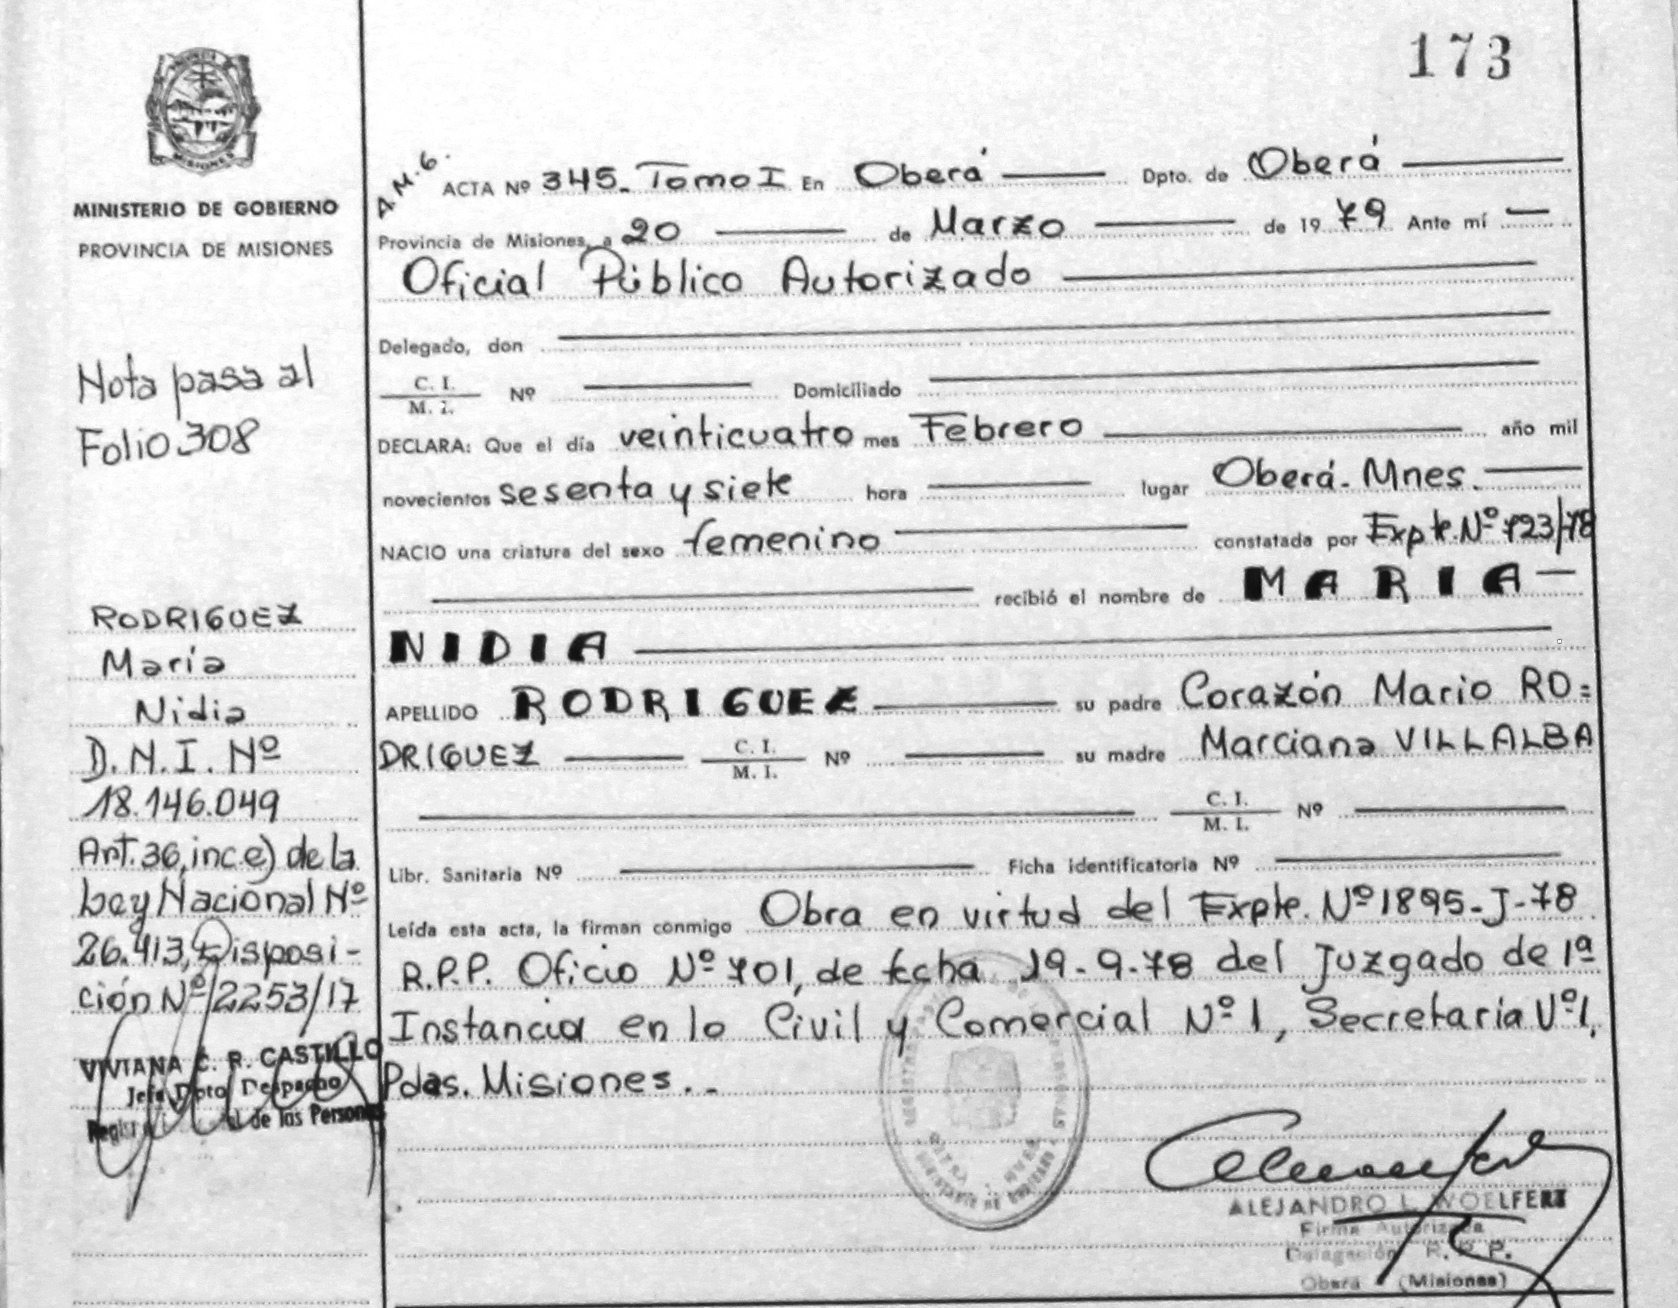 173
MISIONES
MINISTERIO DE GOBIERNO
PROVINCIA DE MISIONES
Nota pasa al
Folio 308
RODRIGUEZ
María
Nidia
D.N.I. Nº
18.146.049
Art.36, inc.e) de la
Ley Nacional Nº
26.413, Disposi-
ción Nº 2253/17
VIVIANA C. R. CASTILLO
Jefa Dpto Despacho
de las Personas
A.M.G.
ACTA Nº 345. Tomo I En Oberá Dpto. de Oberá
Provincia de Misiones, a 20 de Marzo de 1979 Ante mí
Oficial Público Autorizado
Delegado, don
C. I.
M. I. Nº Domiciliado
DECLARA: Que el día veinticuatro mes Febrero año mil
novecientos sesenta y siete hora lugar Oberá. Mnes.
NACIO una criatura del sexo femenino constatada por Expte. Nº 723/78
recibió el nombre de MARIA
NIDIA
APELLIDO RODRIGUEZ su padre Corazón Mario RO=
DRIGUEZ C. I. M. I. Nº su madre Marciana VILLALBA
C. I. M. I. Nº
Libr. Sanitaria Nº Ficha identificatoria Nº
Leída esta acta, la firman conmigo Obra en virtud del Expte. Nº 1895-J-78
R.P.P. Oficio Nº 701, de fecha 19-9-78 del Juzgado de 1ª
Instancia en lo Civil y Comercial Nº 1, Secretaria Nº 1,
Pdas. Misiones.-
ALEJANDRO L. WOELFERT
Firma Autorizada
Delegación R. P. P.
Oberá (Misiones)